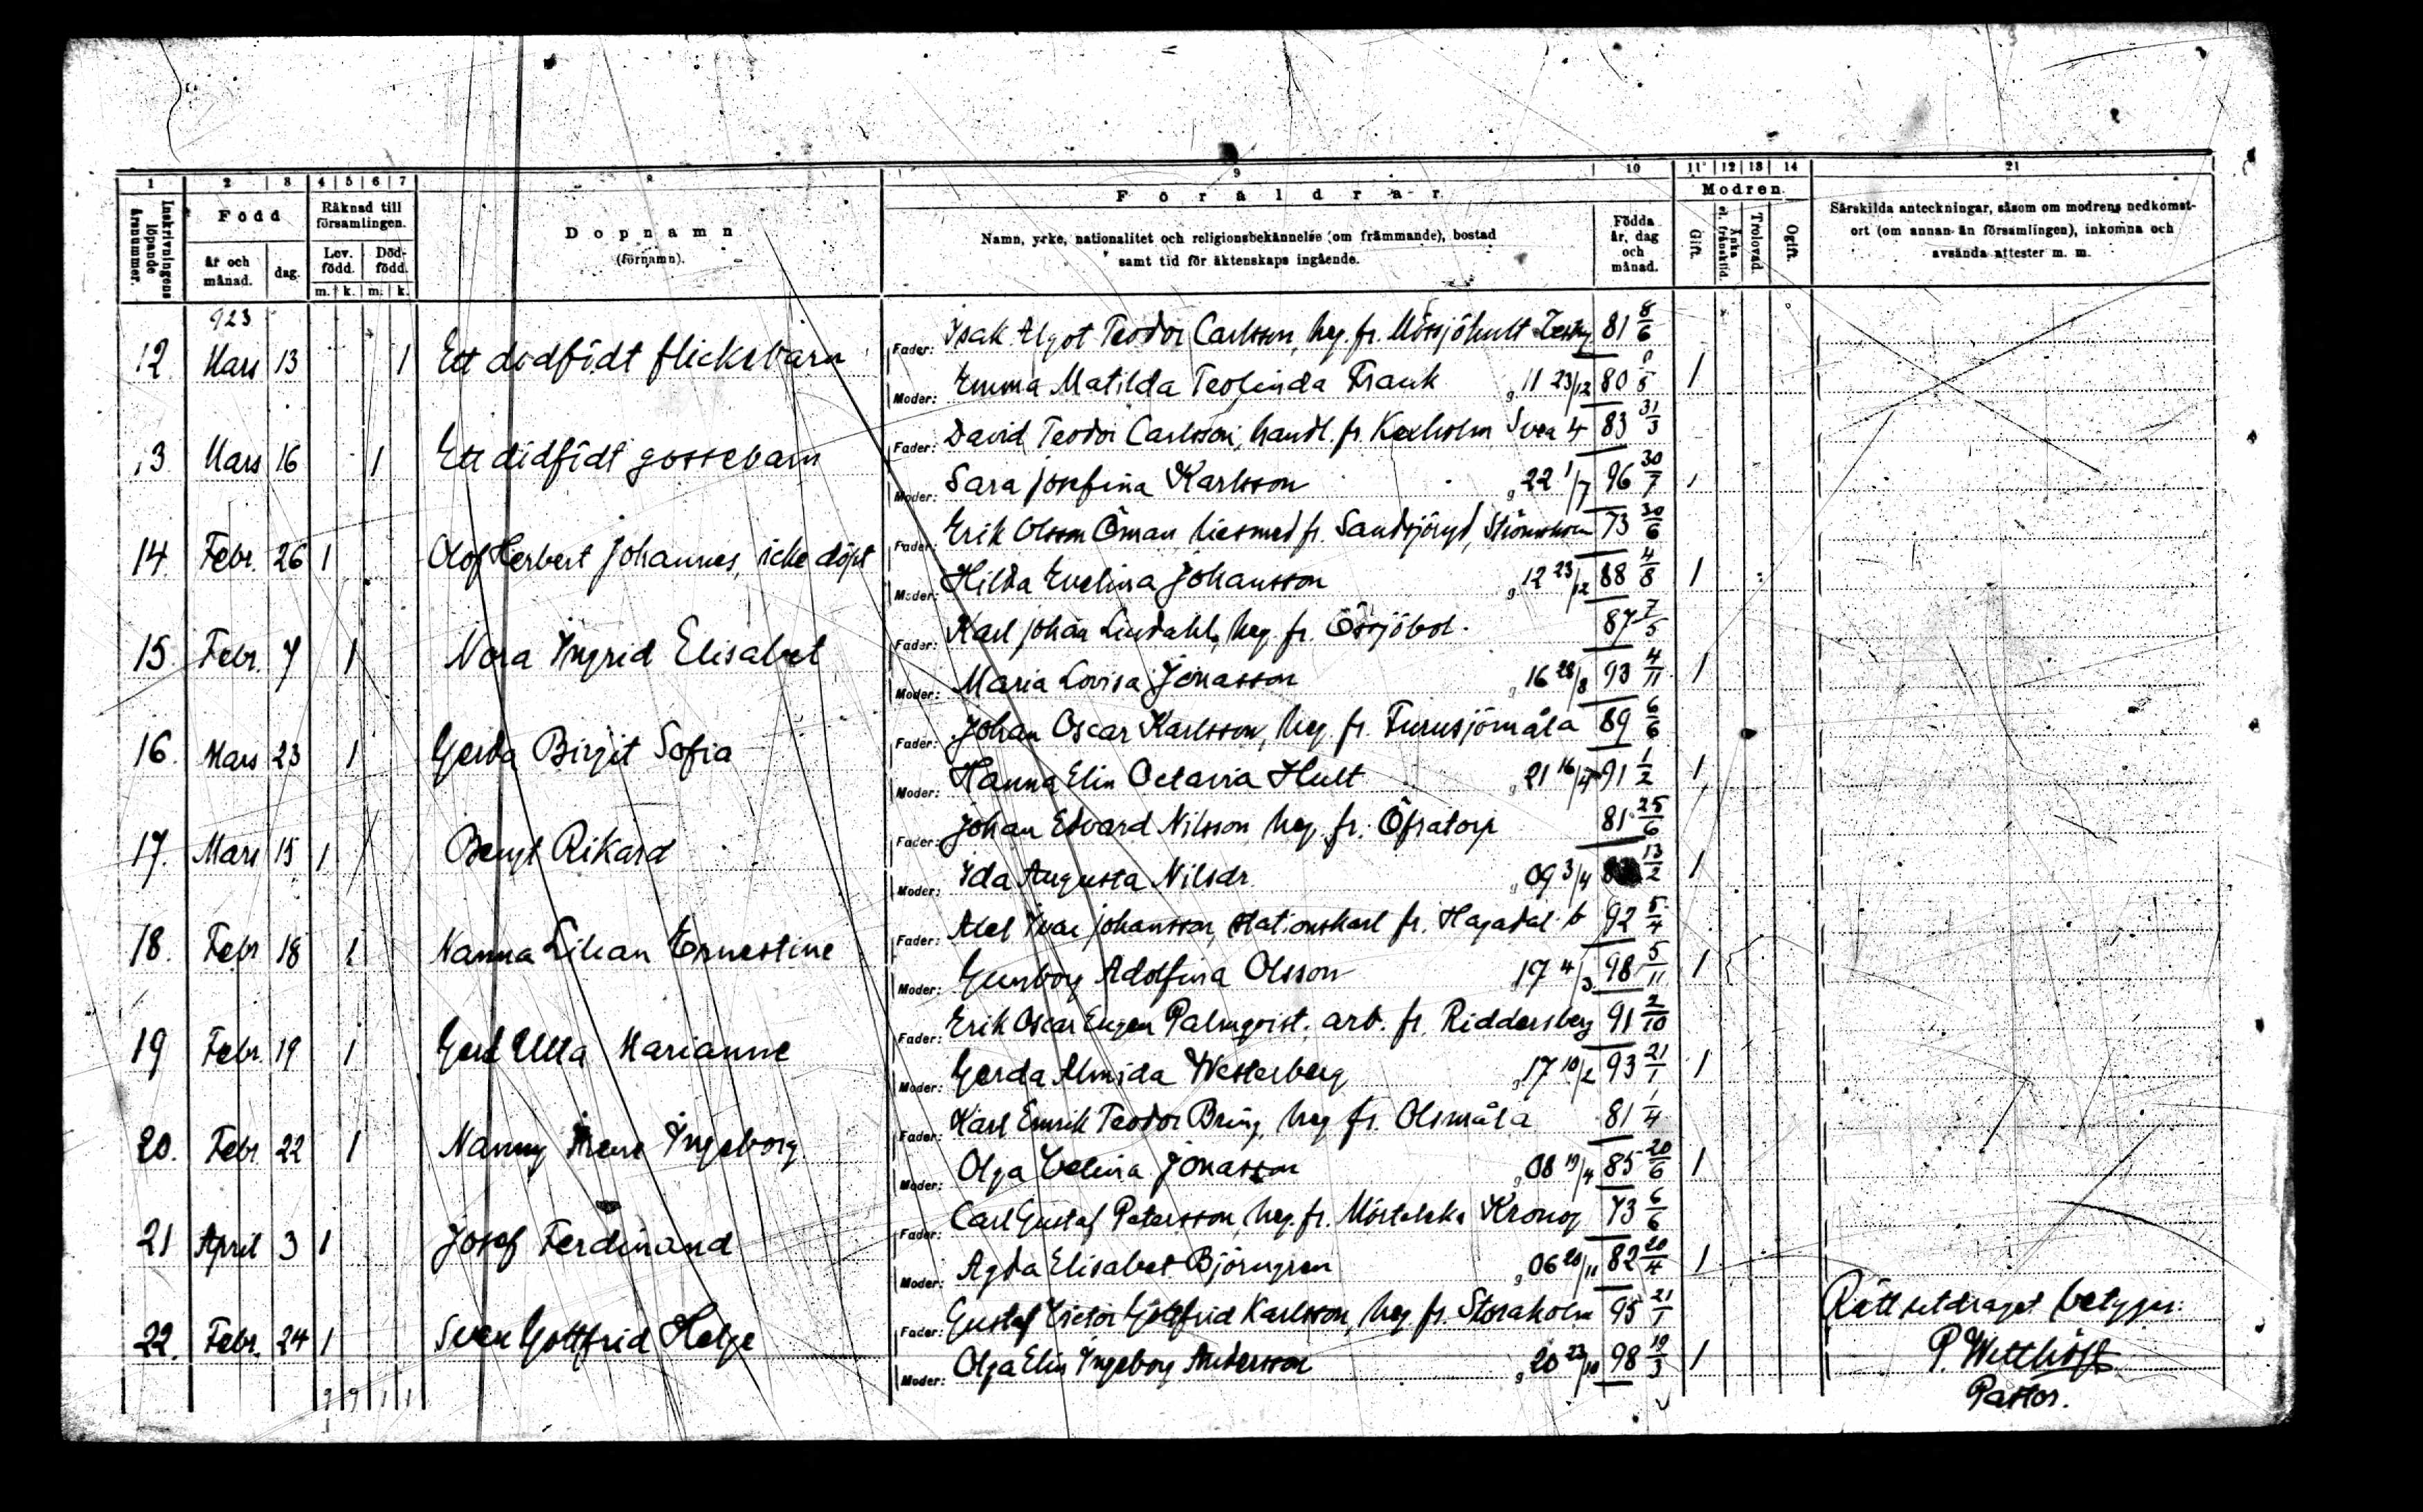 1 2 3 4 5 6 7 8 9 10 11 12 13 14 21
Inskrivningens löpande årsnummer.
Född
år och månad. dag.
Räknad till församlingen.
Lev. född. Död- född.
m. k. m. k.
Dopnamn
(förnamn).
Föräldrar.
Namn, yrke, nationalitet och religionsbekännelse (om främmande), bostad
samt tid för äktenskaps ingående.
Födda år, dag och månad.
Modren.
Gift. Änka el. frånskild. Trolovad. Ogift.
Särskilda anteckningar, såsom om modrens nedkomst-
ort (om annan än församlingen), inkomna och
avsända attester m. m.
923
Fader: Isak Algot Teodor Carlsson, heg. fr. Mössjöhult 81 8/6
12 Mars 13 1 Ett dödfödt flickebarn
Moder: Emma Matilda Teolinda Frank g 11 23/12 80 1
Fader: David Teodor Carlsson, handl. fr. Kexholm Svea 4 83 31/3
13 Mars 16 1 Ett dödfödt gossebarn
Moder: Sara Josefina Karlsson g 22 1/7 96 30/7 1
Fader: Erik Olsson Öman fr. Sandsjöryd, 73 30/6
14. Febr. 26 1 Olof Herbert Johannes, icke döpt
Moder: Hilda Evelina Johansson g 12 23/12 88 4/8 1
Fader: Karl Johan Lindahl, heg. fr. Össjöbol. 87 7/5
15. Febr. 7 1 Nora Ingrid Elisabet
Moder: Maria Lovisa Jonasson g 16 28/8 93 4/11 1
Fader: Johan Oscar Karlsson, heg. fr. Furusjömåla 89 6/6
16. Mars 23 1 Gerda Birgit Sofia
Moder: Hanna Elin Octavia Hult g 21 16/4 91 1/2 1
Fader: Johan Edvard Nilsson heg. fr. Öfratorp 81 25/6
17. Mars 15 1 Bengt Rikard
Moder: Ida Augusta Nilsdr g 09 3/4 13/2 1
Fader: Axel Ivar Johansson, stationskarl fr. Hagadal b 92 5/4
18. Febr 18 1 Nanna Lilian Ernestine
Moder: Gunborg Adolfina Olsson 17 4/3 98 5/11 1
Fader: Erik Oscar Eugen Palmqvist, arb. fr. Riddersberg 91 2/10
19 Febr. 19 1 Gerd Ulla Marianne
Moder: Gerda Almida Westerberg g 17 10/2 93 21/1 1
Fader: Karl Emrik Teodor Bring, heg fr. Olsmåla 81 1/4
20. Febr. 22 1 Nanny Irene Ingeborg
Moder: Olga Celina Jonasson g 08 19/4 85 20/6 1
Fader: Carl Gustaf Petersson, heg. fr. Mörteleke Kronog 73 6/6
21 April 3 1 Josef Ferdinand
Moder: Agda Elisabet Björngren g 06 20/11 82 20/4 1
Fader: Gustaf Victor Gottfrid Karlsson, heg fr. Storaholm 95 21/1
Rätt utdraget betygar:
22. Febr. 24 1 Sven Gottfrid Helge
P. Witthöft
Moder: Olga Elin Ingeborg Andersson g 20 23/10 98 19/3 1
Pastor.